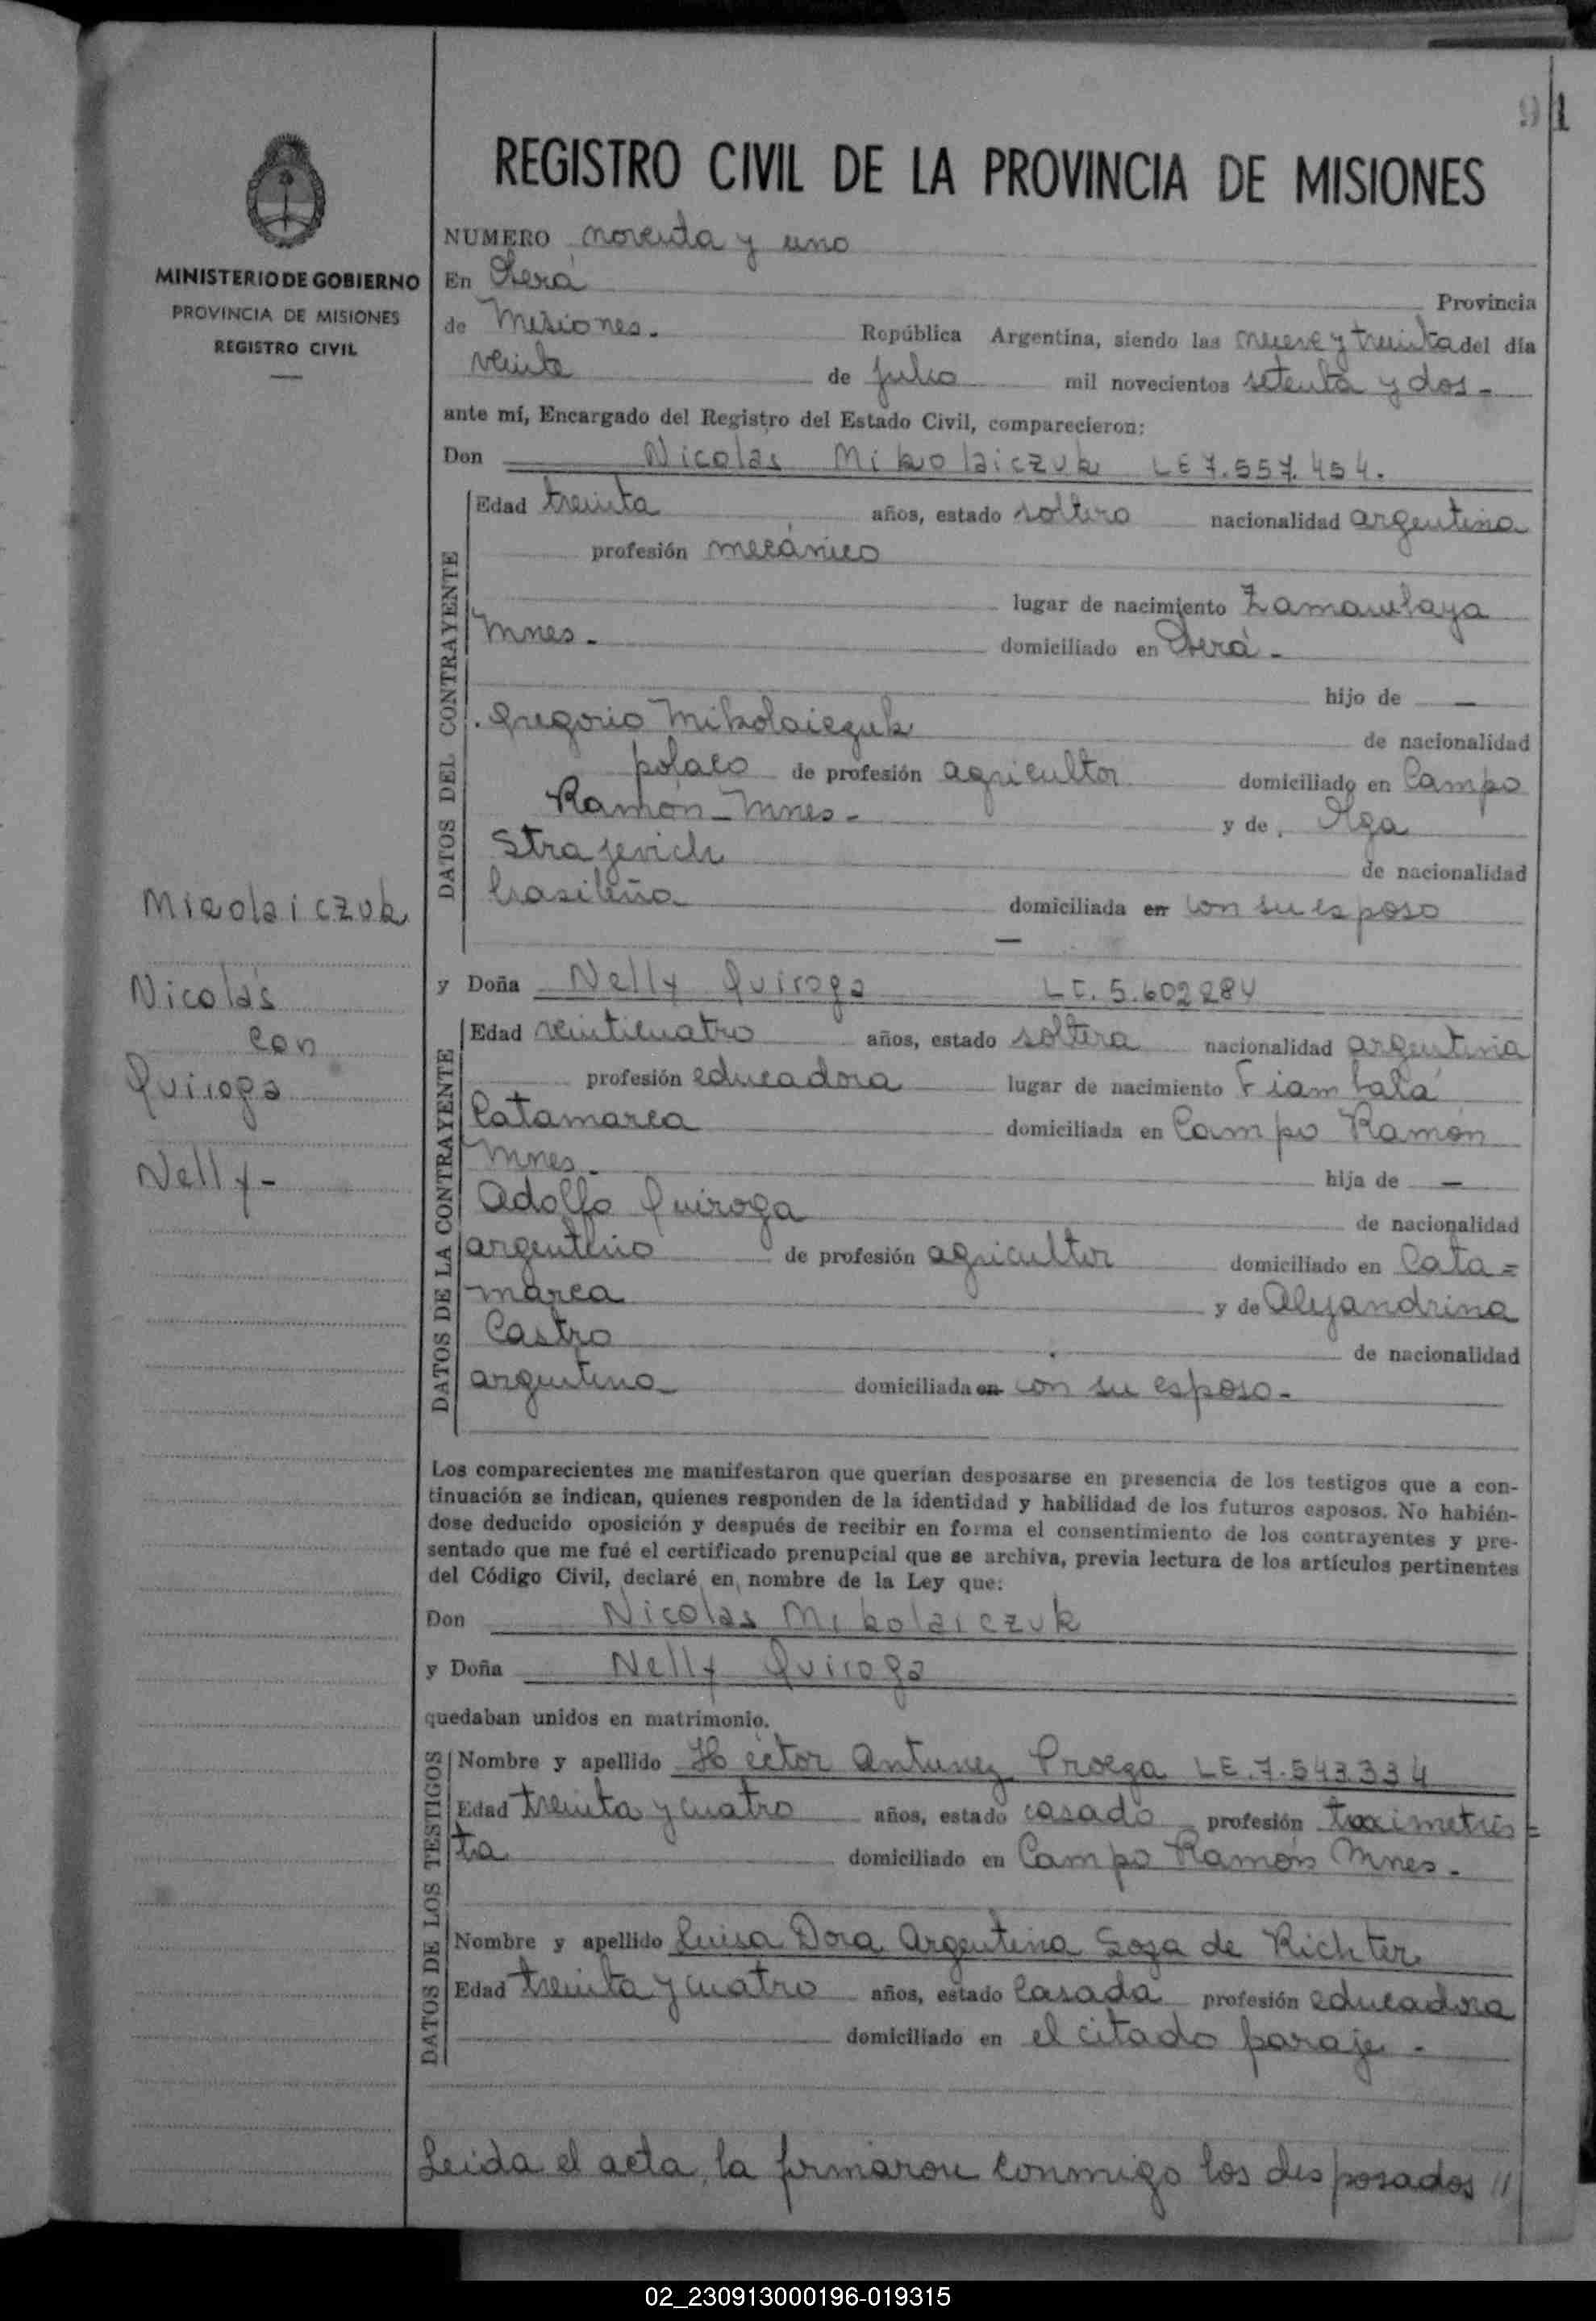 91
REGISTRO CIVIL DE LA PROVINCIA DE MISIONES
MINISTERIO DE GOBIERNO
PROVINCIA DE MISIONES
REGISTRO CIVIL
NUMERO noventa y uno
En Oberá Provincia
de Misiones.- República Argentina, siendo las nueve y treinta del día
veinte de julio mil novecientos setenta y dos -
ante mí, Encargado del Registro del Estado Civil, comparecieron:
Don Nicolás Mikolaiczuk LE 7.557.454.
DATOS DEL CONTRAYENTE
Edad treinta años, estado soltero nacionalidad argentina
profesión mecánico
lugar de nacimiento
Mnes - domiciliado en Oberá -
hijo de —
Gregorio Mikolaiczuk de nacionalidad
polaco de profesión agricultor domiciliado en Campo
Ramón - Mnes - y de Olga
Strajevich de nacionalidad
brasileña domiciliada en con su esposo
—
Micolaiczuk
Nicolás
con
Quiroga
Nelly -
y Doña Nelly Quiroga LC. 5.602284
DATOS DE LA CONTRAYENTE
Edad veinticuatro años, estado soltera nacionalidad argentina
profesión educadora lugar de nacimiento Fiambalá
Catamarca domiciliada en Campo Ramón
Mnes - hija de —
Adolfo Quiroga de nacionalidad
argentino de profesión agricultor domiciliado en Cata=
marca y de Alejandrina
Castro de nacionalidad
argentina domiciliada en con su esposo -
Los comparecientes me manifestaron que querían desposarse en presencia de los testigos que a con-
tinuación se indican, quienes responden de la identidad y habilidad de los futuros esposos. No habién-
dose deducido oposición y después de recibir en forma el consentimiento de los contrayentes y pre-
sentado que me fué el certificado prenupcial que se archiva, previa lectura de los artículos pertinentes
del Código Civil, declaré en nombre de la Ley que:
Don Nicolás Mikolaiczuk
y Doña Nelly Quiroga
quedaban unidos en matrimonio.
DATOS DE LOS TESTIGOS
Nombre y apellido Héctor Antunez LE. 7.543.334
Edad treinta y cuatro años, estado casado profesión taximetris=
ta domiciliado en Campo Ramón Mnes -
Nombre y apellido Luisa Dora Argentina Soza de Richter
Edad treinta y cuatro años, estado casada profesión educadora
domiciliado en el citado paraje -
Leida el acta, la firmaron conmigo los desposados //
02_230913000196-019315